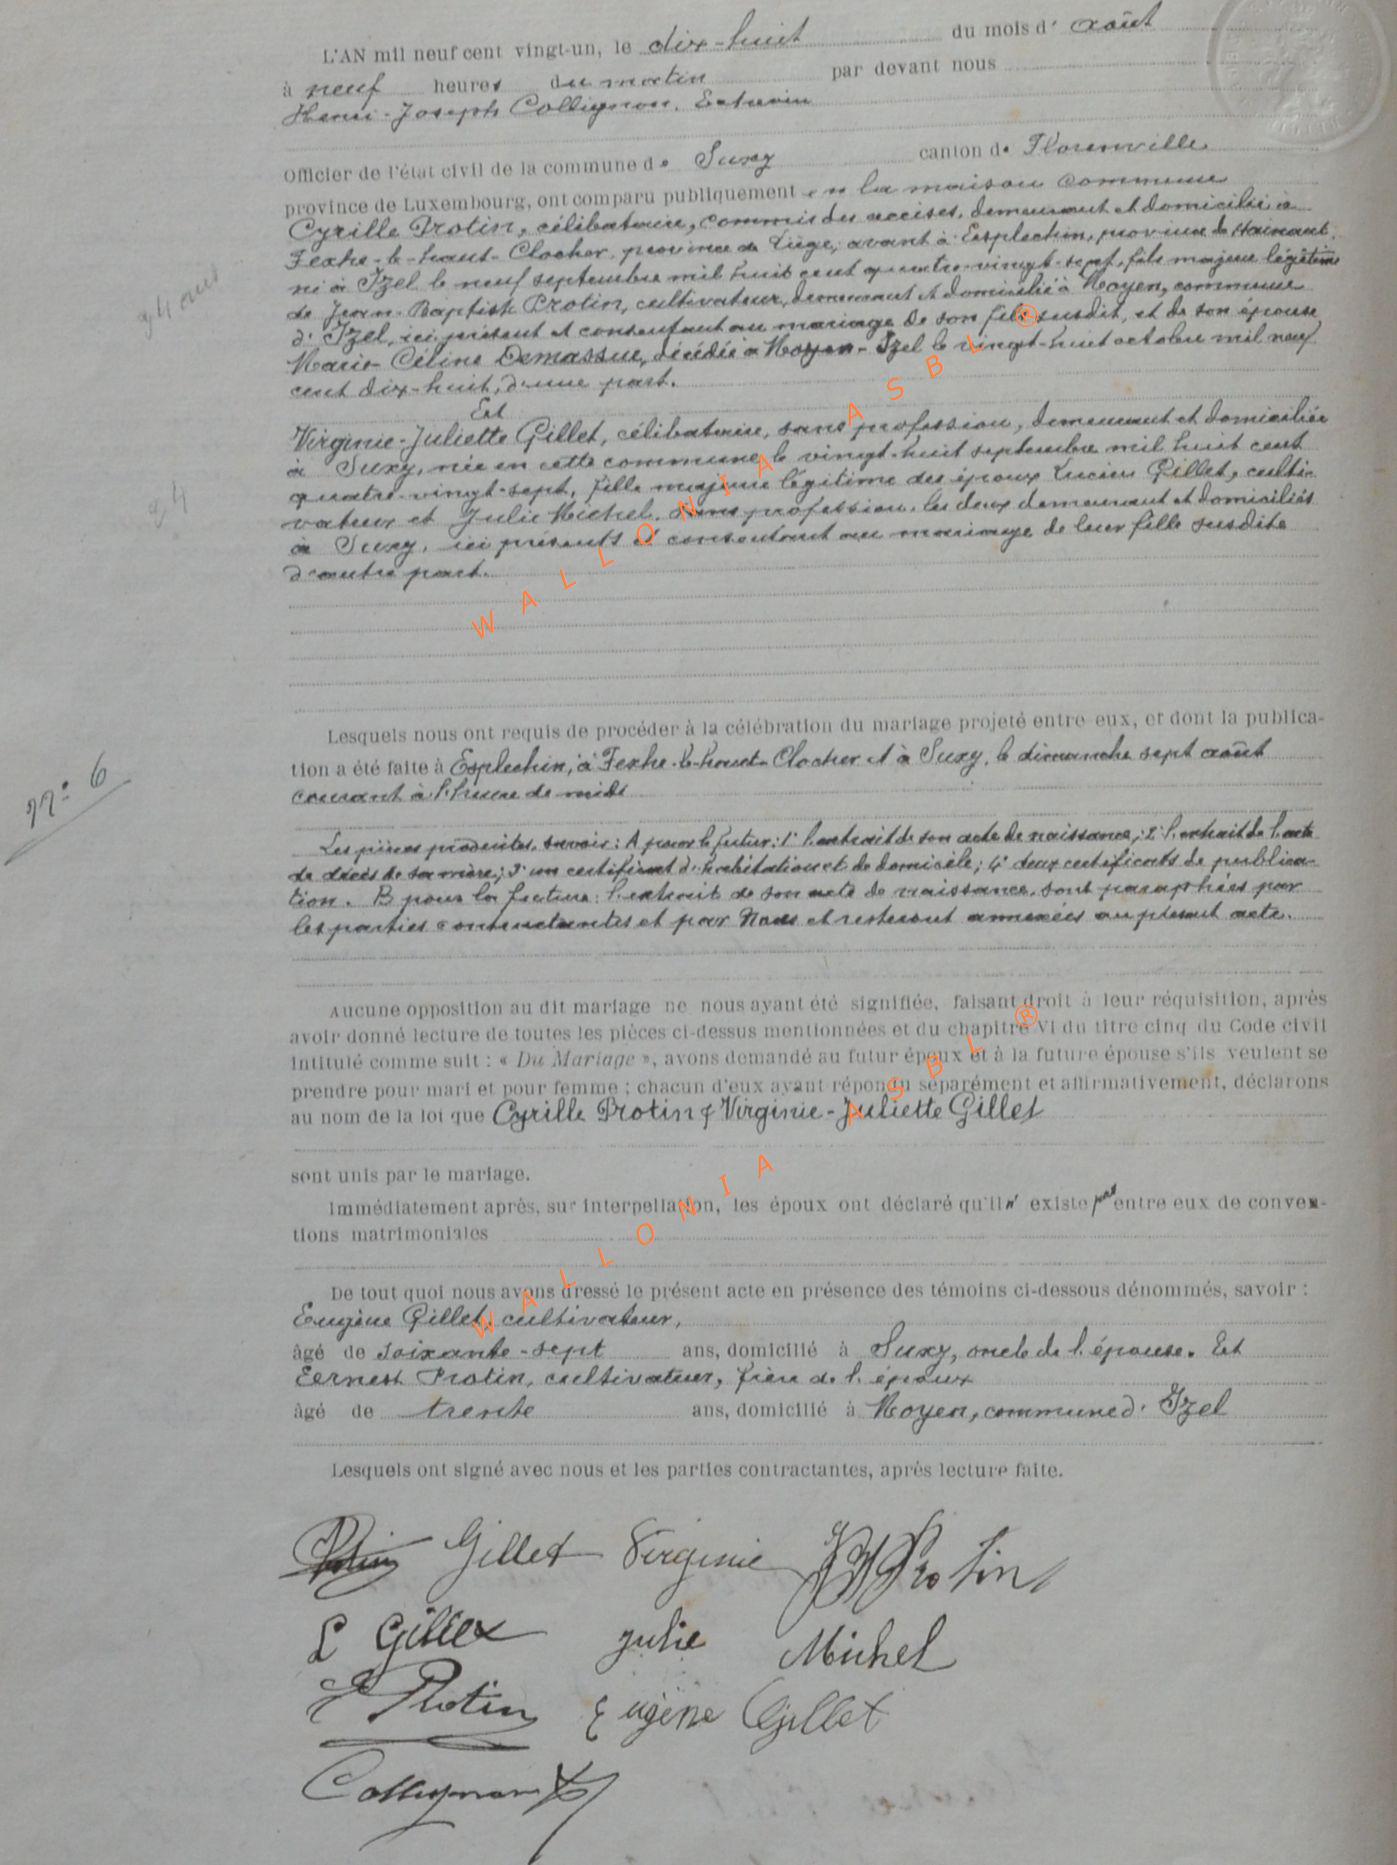 L'AN mil neuf cent vingt-un, le dix-huit du mois d' août
à neuf heures du matin par devant nous
Henri-Joseph Collignon, Echevin
Officier de l'état civil de la commune de Suxy canton de Florenville
province de Luxembourg, ont comparu publiquement en la maison commune
Cyrille Protin, célibataire, commis des accises, demeurant et domicilié à
Fexhe-le-haut-Clocher, province de Liège, avant à Esplechin, province de Hainaut,
né à Izel le neuf septembre mil huit cent quatre-vingt-sept, fils majeur légitime
24 ans
de Jean-Baptiste Protin, cultivateur, demeurant et domicilié à Moyen, commune
d'Izel, ici présent et consentant au mariage de son fils susdit, et de son épouse
Marie-Céline Demassue, décédée à Moyen-Izel le vingt-huit octobre mil neuf
cent dix-huit, d'une part.
Et
Virginie-Juliette Gillet, célibataire, sans profession, demeurant et domiciliée
à Suxy, née en cette commune le vingt-huit septembre mil huit cent
quatre-vingt-sept, fille majeure légitime des époux Lucien Gillet, culti-
24
vateur et Julie Michel, sans profession, les deux demeurant et domiciliés
à Suxy, ici présents et consentant au mariage de leur fille susdite
d'autre part.
WALLONIA ASBL ®
Lesquels nous ont requis de procéder à la célébration du mariage projeté entre eux, et dont la publica-
tion a été faite à Esplechin, à Fexhe-le-haut-Clocher et à Suxy, le dimanche sept août
n° 6
courant à l'heure de midi
Les pièces produites, savoir: A pour le futur: 1° l'extrait de son acte de naissance; 2° l'extrait de l'acte
de décès de sa mère; 3° un certificat d'habitation et de domicile; 4° deux certificats de publica-
tion. B pour la future: l'extrait de son acte de naissance, sont paraphées par
les parties contractantes et par Nous et resteront annexées au présent acte.
Aucune opposition au dit mariage ne nous ayant été signifiée, faisant droit à leur réquisition, après
avoir donné lecture de toutes les pièces ci-dessus mentionnées et du chapitre VI du titre cinq du Code civil
intitulé comme suit : « Du Mariage », avons demandé au futur époux et à la future épouse s'ils veulent se
prendre pour mari et pour femme ; chacun d'eux ayant répondu séparément et affirmativement, déclarons
au nom de la loi que Cyrille Protin & Virginie-Juliette Gillet
sont unis par le mariage.
Immédiatement après, sur interpellation, les époux ont déclaré qu'il n' existe pas entre eux de conven-
tions matrimoniales
WALLONIA ASBL ®
De tout quoi nous avons dressé le présent acte en présence des témoins ci-dessous dénommés, savoir :
Eugène Gillet, cultivateur,
âgé de soixante-sept ans, domicilié à Suxy, oncle de l'épouse. Et
Eernest Protin, cultivateur, frère de l'époux
âgé de trente ans, domicilié à Moyen, commune d'Izel
Lesquels ont signé avec nous et les parties contractantes, après lecture faite.
Protin Gillet Virginie JB Protin
L Gillet Julie Michel
E Protin Eugène Gillet
Collignon